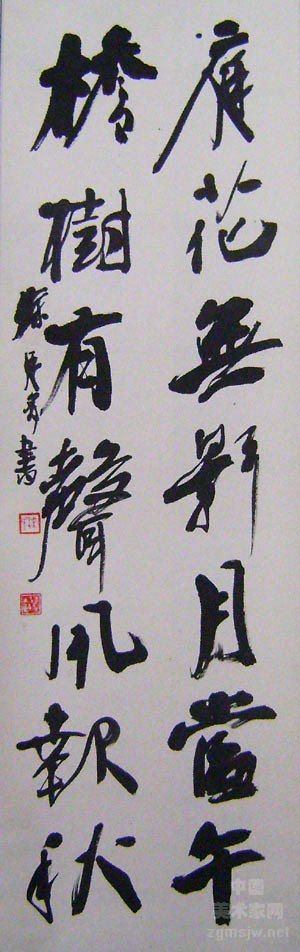 庭花無影月當午
檐樹有聲風報秋
書
中国
美术家网
zgmsjw.net